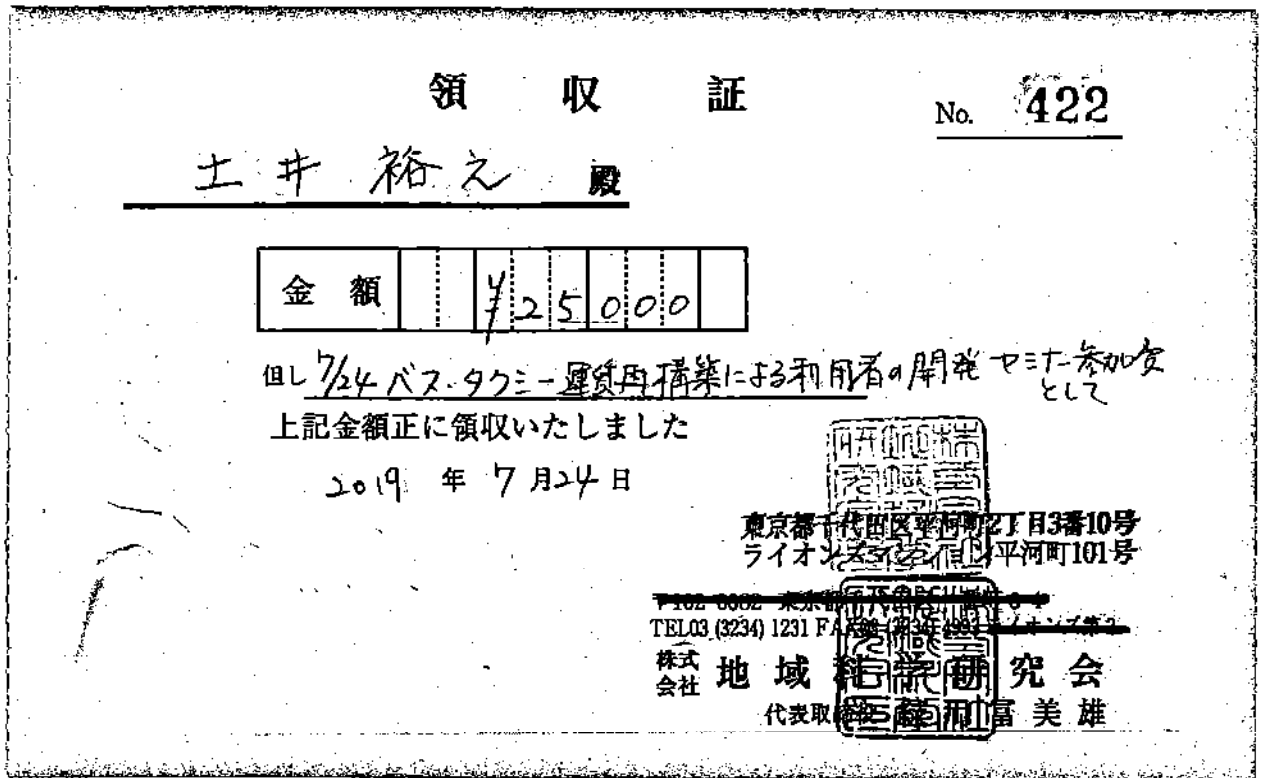 領 収 証
No. 422
土井 裕之 殿
金 額 ¥25000
但し 7/24 バス・タクシー運賃再構築による利用者の開発 セミナー参加費
として
上記金額正に領収いたしました
2019 年 7 月 24 日
東京都千代田区平河町2丁目3番10号
ライオンズマンション平河町101号
TEL03 (3234) 1231 FAX03 (3234) 4993
株式会社 地域科学研究会
代表取締役 富美雄